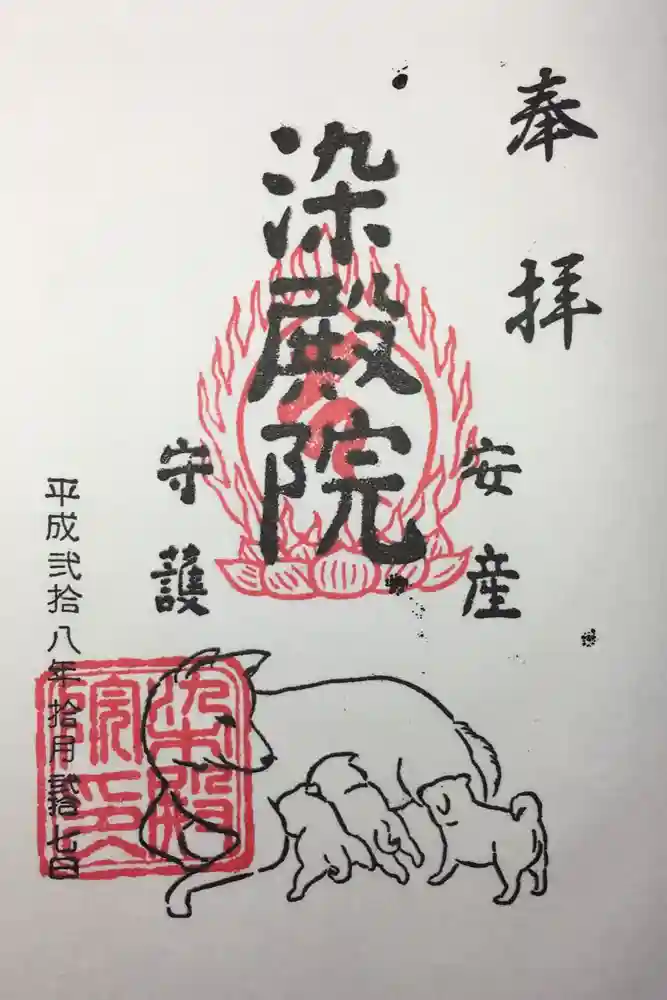 奉拝
安産
染殿院
守護
平成弐拾八年拾月弐拾七日
染殿
院印